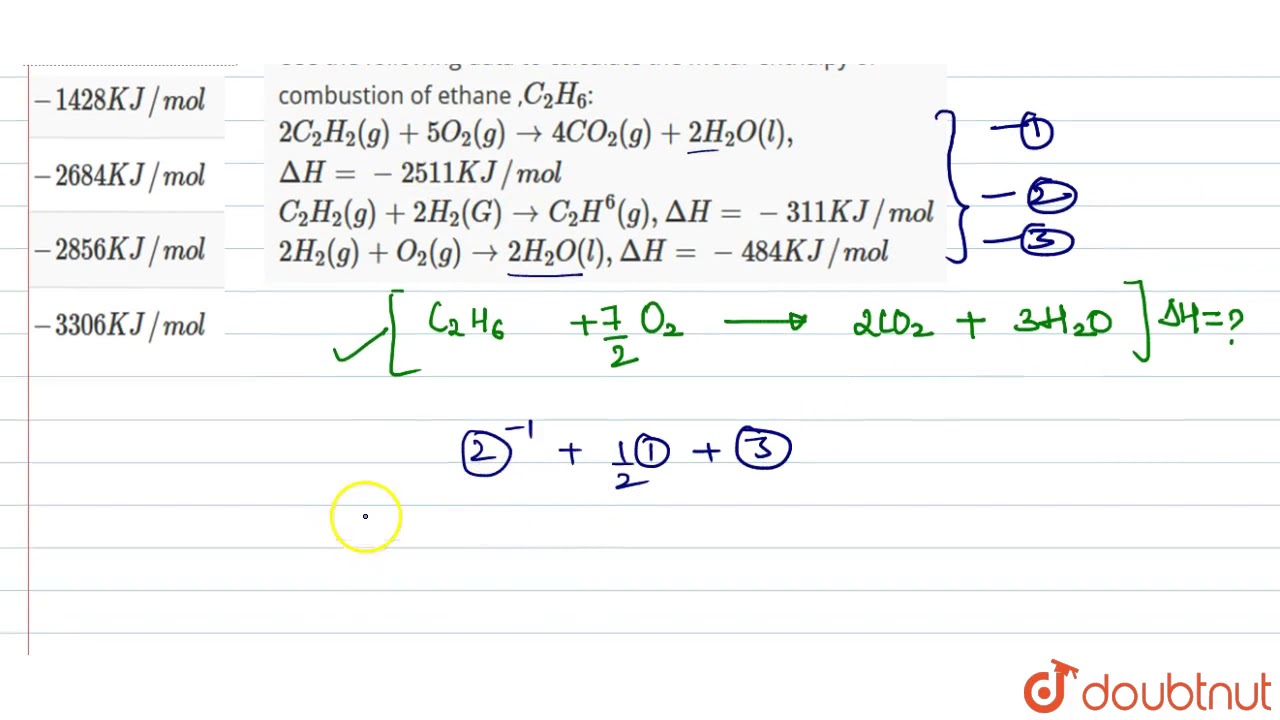 -1428KJ/mol
-2684KJ/mol
-2856KJ/mol
-3306KJ/mol
combustion of ethane ,C₂H₆:
2C₂H₂(g) + 5O₂(g) → 4CO₂(g) + 2H₂O(l),
ΔH = -2511KJ/mol
C₂H₂(g) + 2H₂(G) → C₂H⁶(g), ΔH = -311KJ/mol
2H₂(g) + O₂(g) → 2H₂O(l), ΔH = -484KJ/mol
—①
—②
—③
[C₂H₆ + 7/2 O₂ → 2CO₂ + 3H₂O] ΔH = ?
②⁻¹ + 1/2 ① + ③
doubtnut